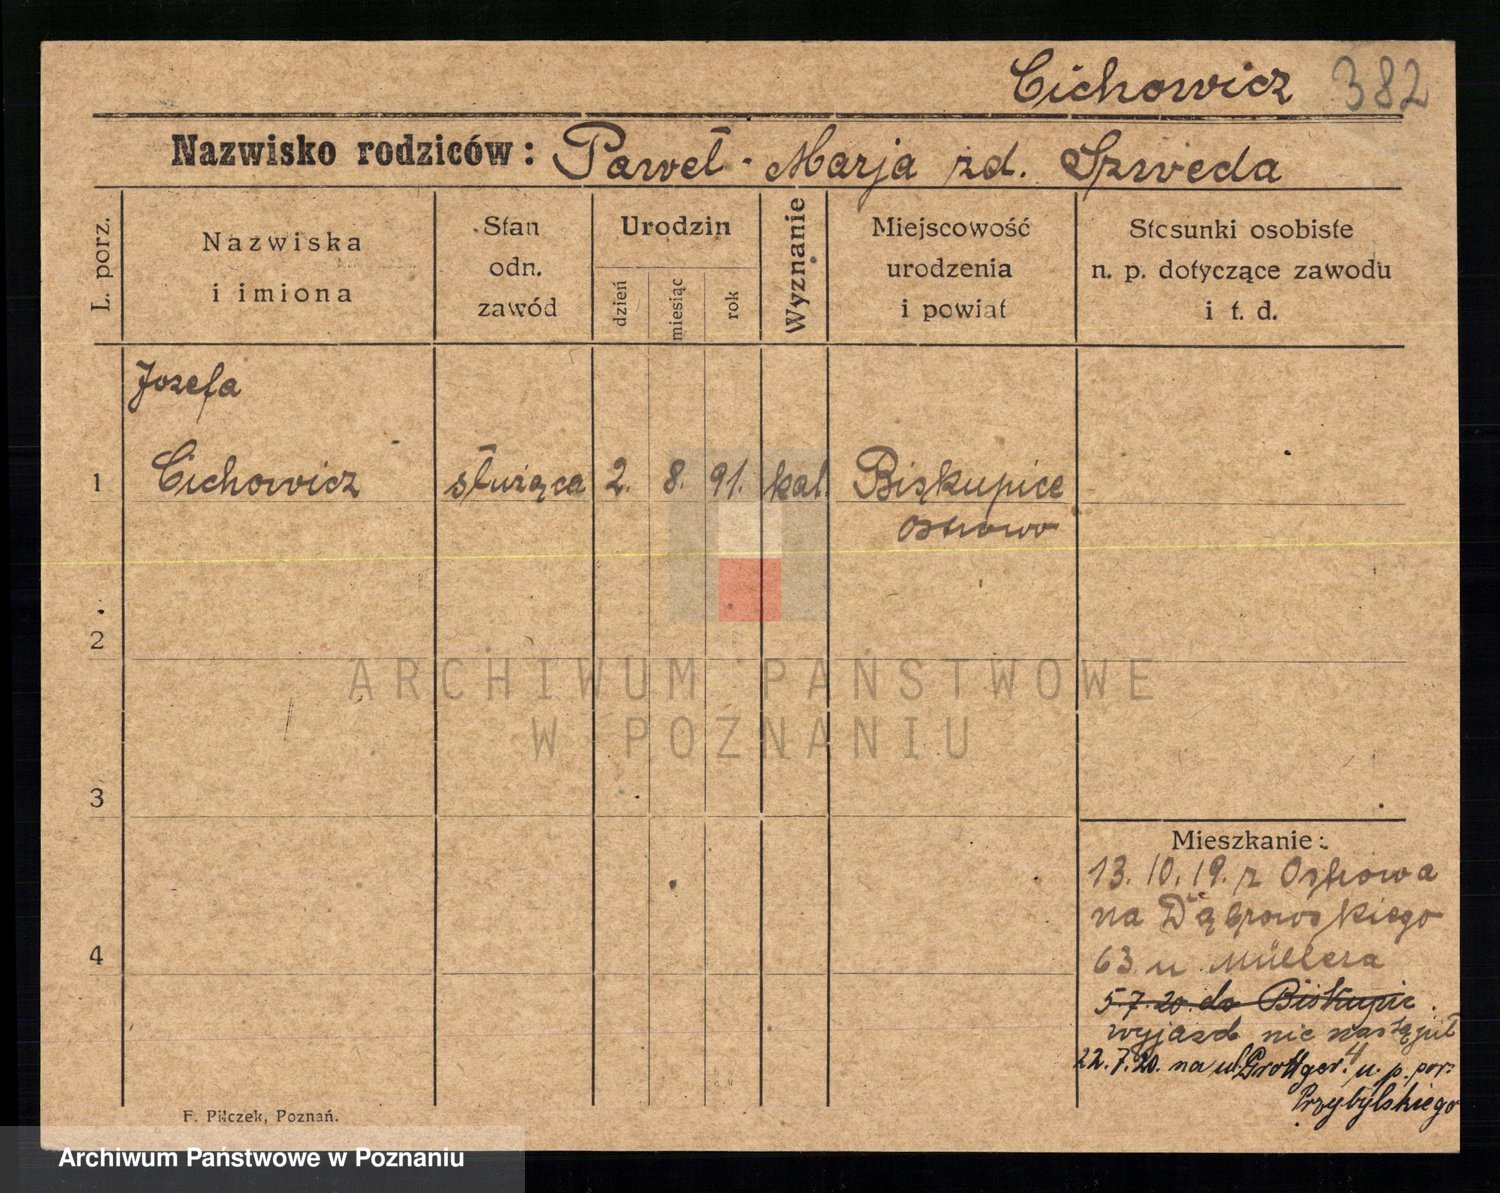 Cichowicz 382
Nazwisko rodziców: Paweł - Marja zd. Szweda
L. porz.
Nazwiska
i imiona
Stan
odn.
zawód
Urodzin
dzień
miesiąc
rok
Wyznanie
Miejscowość
urodzenia
i powiat
Stosunki osobiste
n. p. dotyczące zawodu
i t. d.
Józefa
1 Cichowicz służąca 2. 8. 91. kat. Biskupice
Ostrowo
2
3
4
ARCHIWUM PAŃSTWOWE
W POZNANIU
Mieszkanie:
13. 10. 19. z Ostrowa
na Dąbrowskiego
63 u Müllera
5.7.20. do Biskupic.
wyjazd nie nastąpił
22.7.20. na ul. Grottger. 4 u. p. por.
Przybylskiego
F. Pilczek, Poznań.
Archiwum Państwowe w Poznaniu